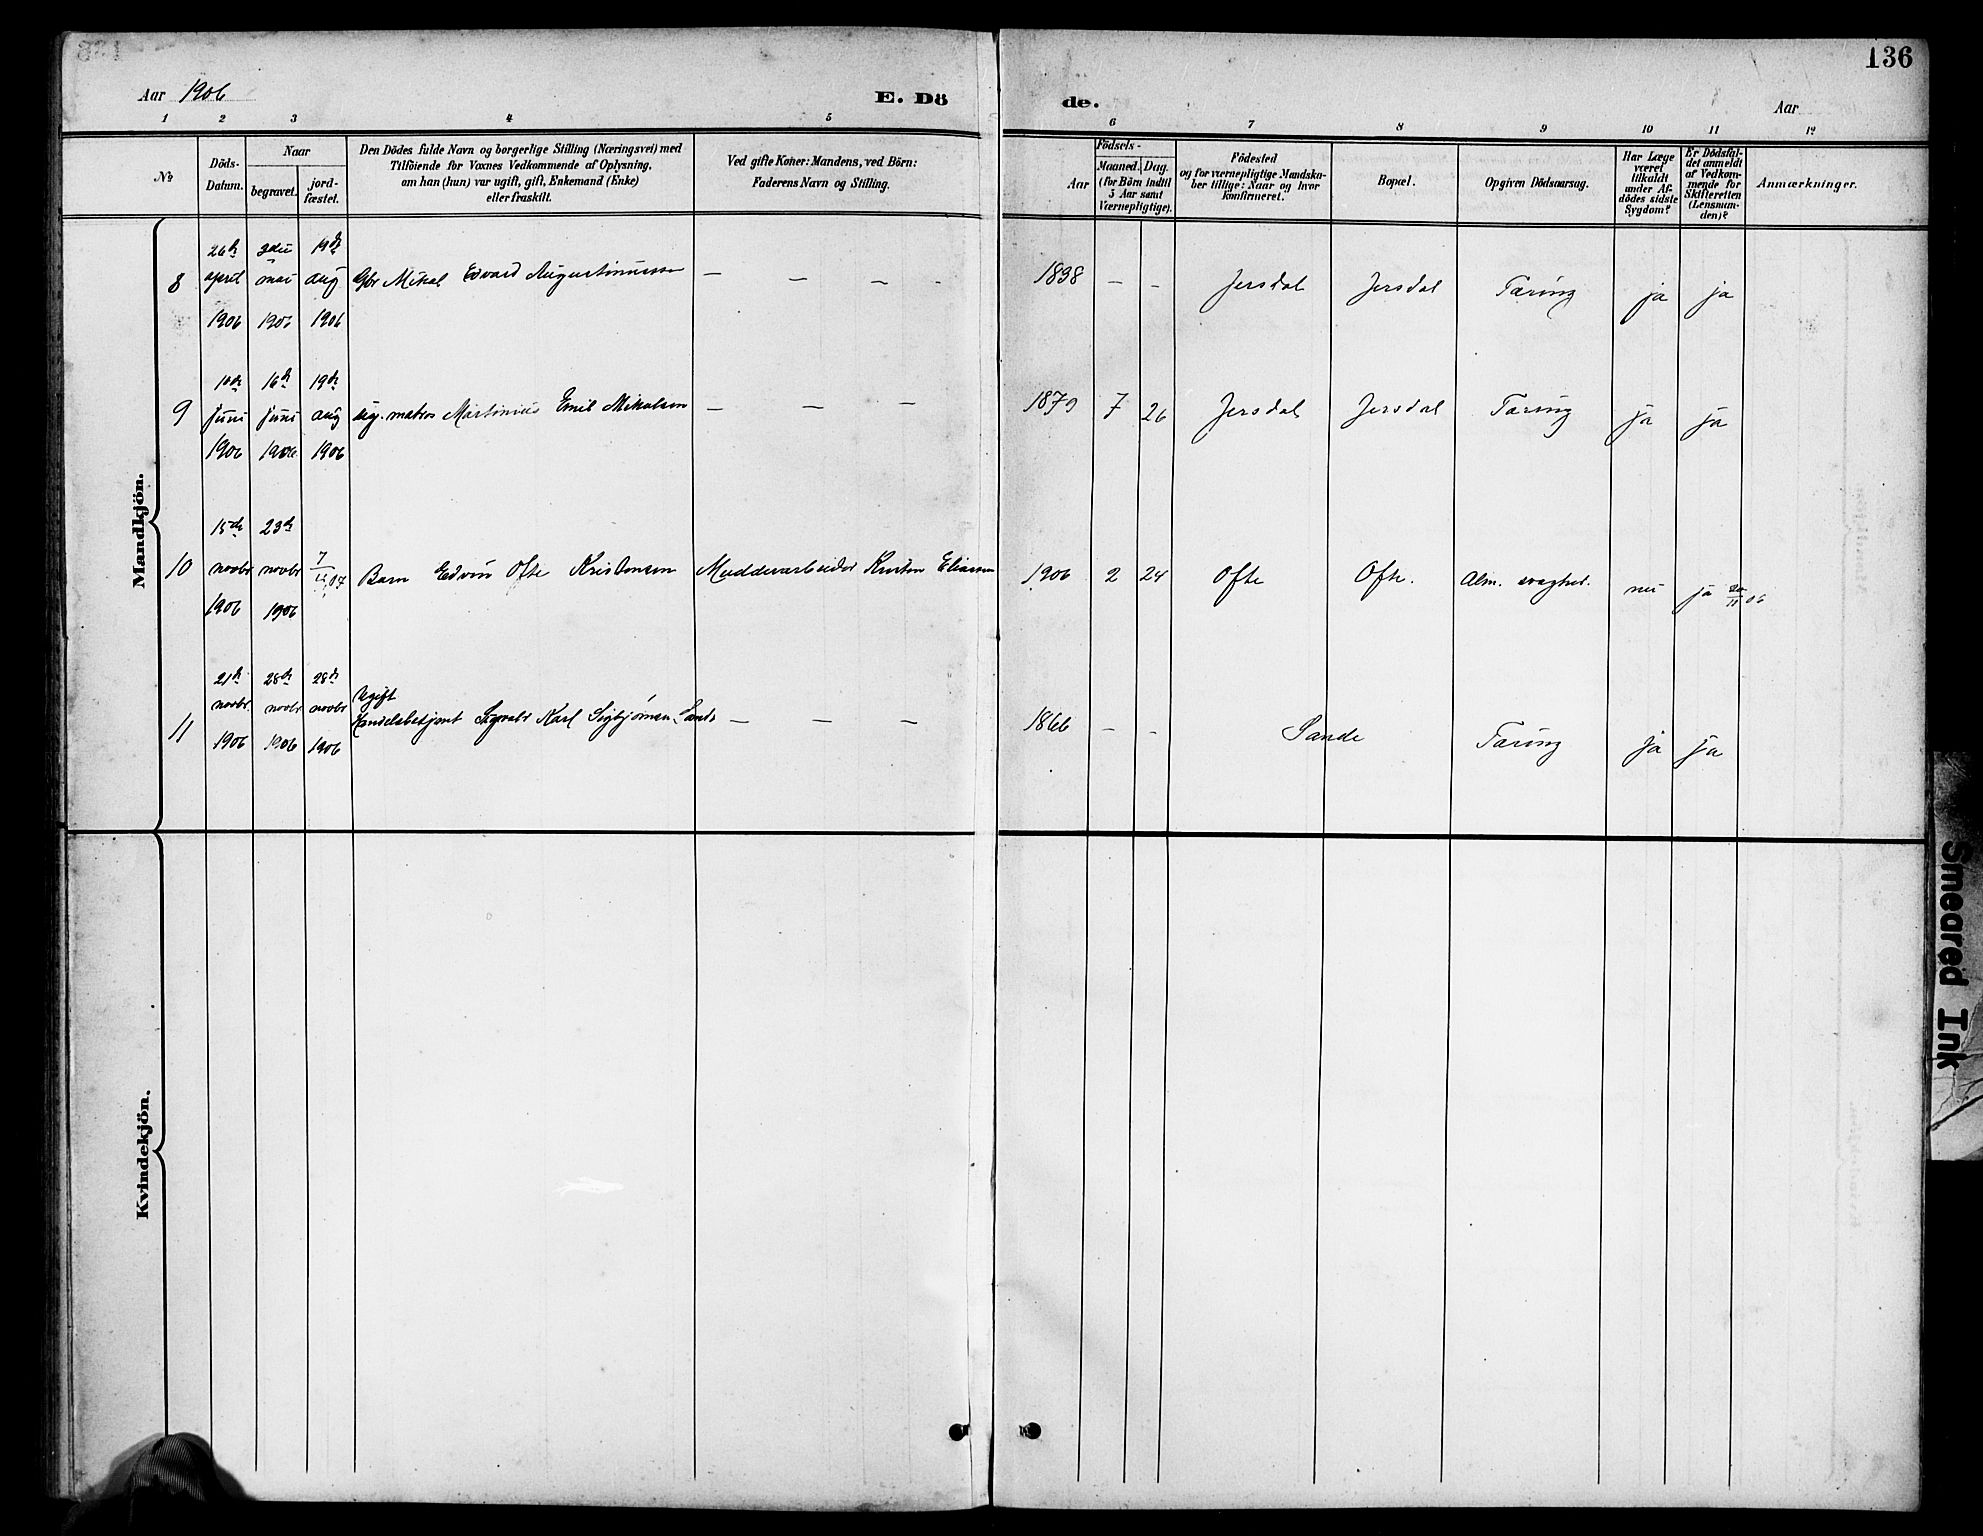 136
Aar 1906
E. Dö de.
Aar
1 2 3 4 5 6 7 8 9 10 11 12
No
Döds-
Datum.
Naar
begravet.
jord-
fæstet.
Den Dödes fulde Navn og borgerlige Stilling (Næringsvei) med
Tilföiende for Voxnes Vedkommende af Oplysning,
om han (hun) var ugift, gift, Enkemand (Enke)
eller fraskilt.
Ved gifte Koner: Mandens, ved Börn:
Faderens Navn og Stilling.
Födsels-
Aar
Maaned. Dag.
(for Börn indtil
5 Aar samt
Værnepligtige).
Födested
og for værnepligtige Mandska-
ber tillige: Naar og hvor
konfirmeret.
Bopæl.
Opgiven Dödsaarsag.
Har Læge
været
tilkaldt
under Af-
dödes sidste
Sygdom?
Er Dödsfal-
det anmeldt
af Vedkom-
mende for
Skifteretten
(Lensman-
den)?
Anmærkninger.
Mandkjön.
8
26de april 1906
3die mai 1906
19de aug 1906
Gbr Mikal Edvard Augustinussen — — — -
1838 — - Jersdal Jersdal Tæring ja ja
9
10de juni 1906
16de juni 1906
19de aug 1906
ug. matros Martinius Emil Mikalsen — — —
1879 7 26 Jersdal Jersdal Tæring ja ja
10
15de novbr 1906
23de novbr 1906
Barn Edvin Ofte Kristensen
1906 2 24 Ofte Ofte. Alm. svaghed. nei ja 20/11 06
11
21de novbr. 1906
28de novbr 1906
28de novbr 1906
Ugift
Handelsbetjent Sigvald Karl Sigbjørnsen Sande — — —
1866 — - Sande Tæring ja ja
Kvindekjön.
Smeared Ink